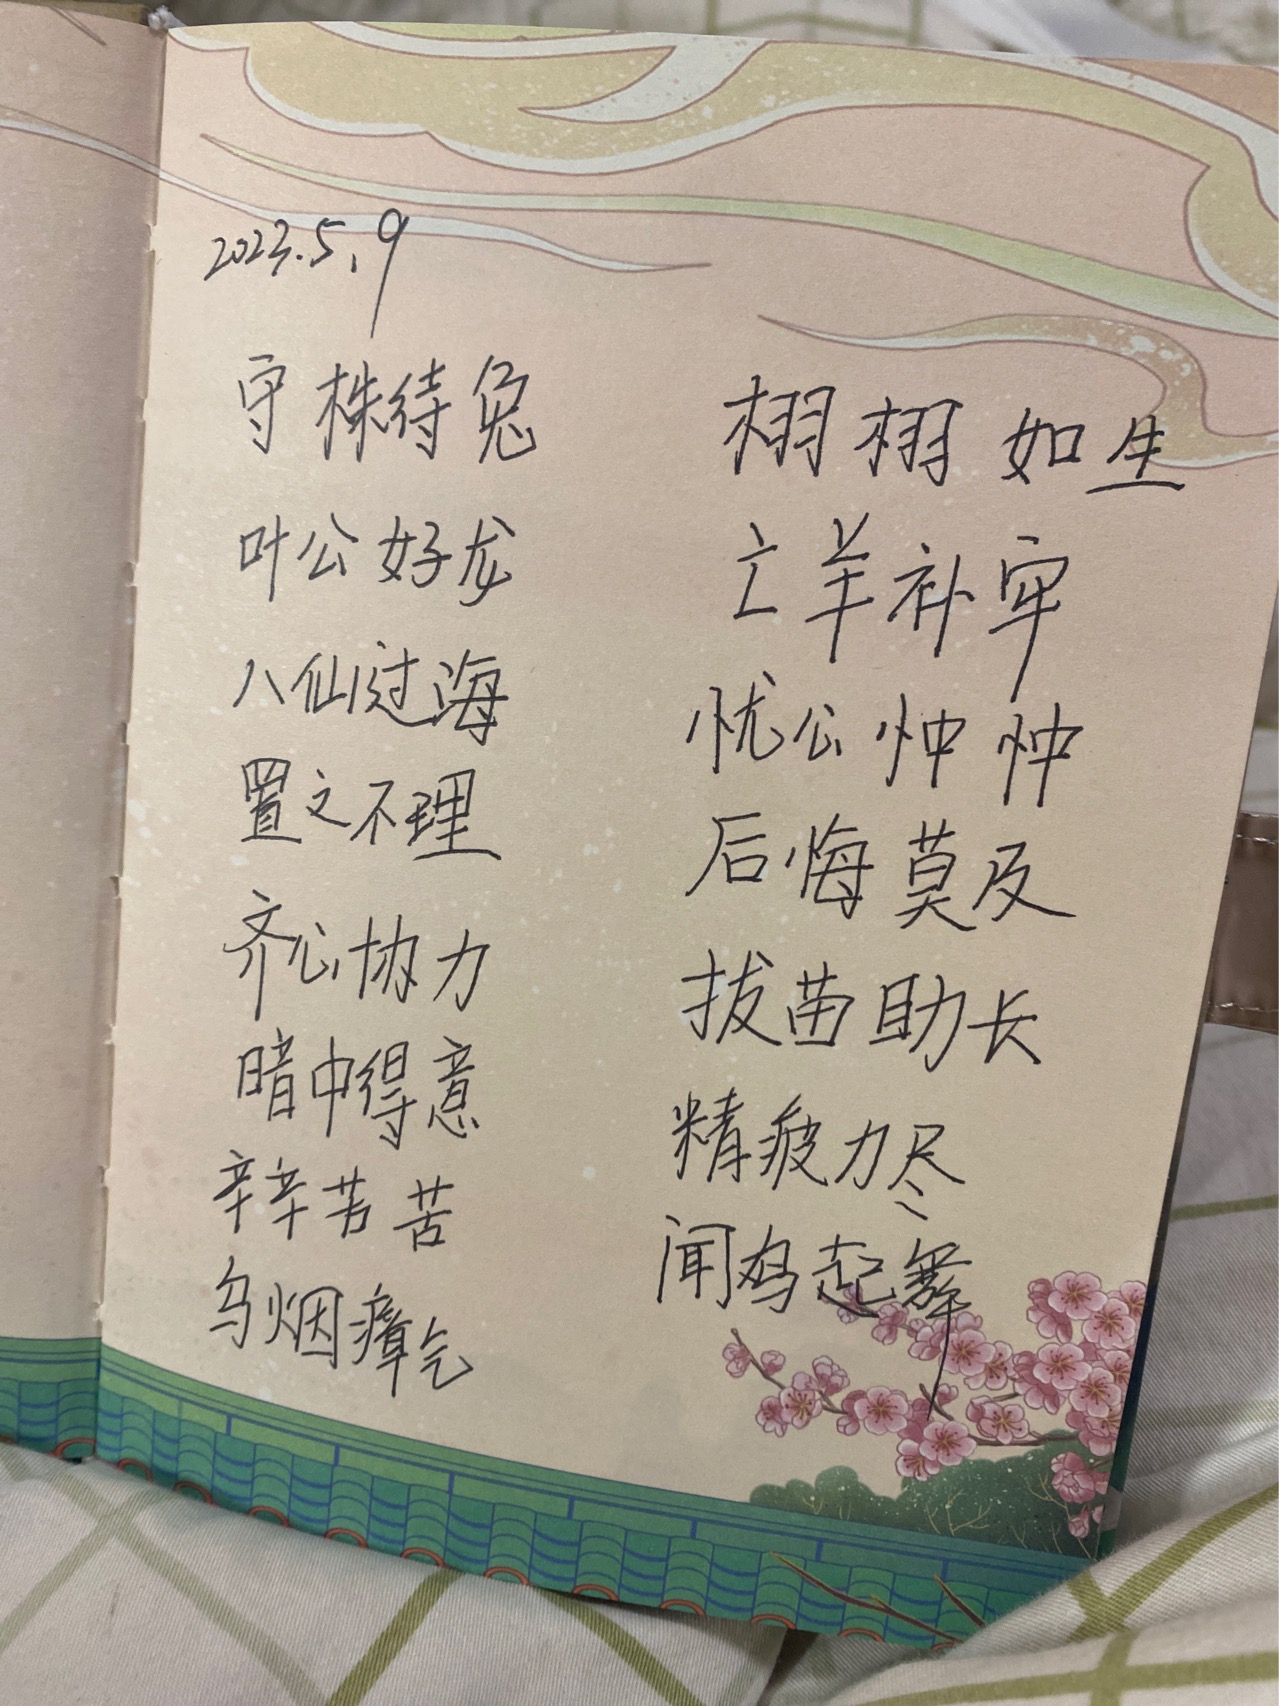 2023.5.9
守株待兔
叶公好龙
八仙过海
置之不理
齐心协力
暗中得意
辛辛苦苦
乌烟瘴气
栩栩如生
亡羊补牢
忧公忡忡
后悔莫及
拔苗助长
精疲力尽
闻鸡起舞